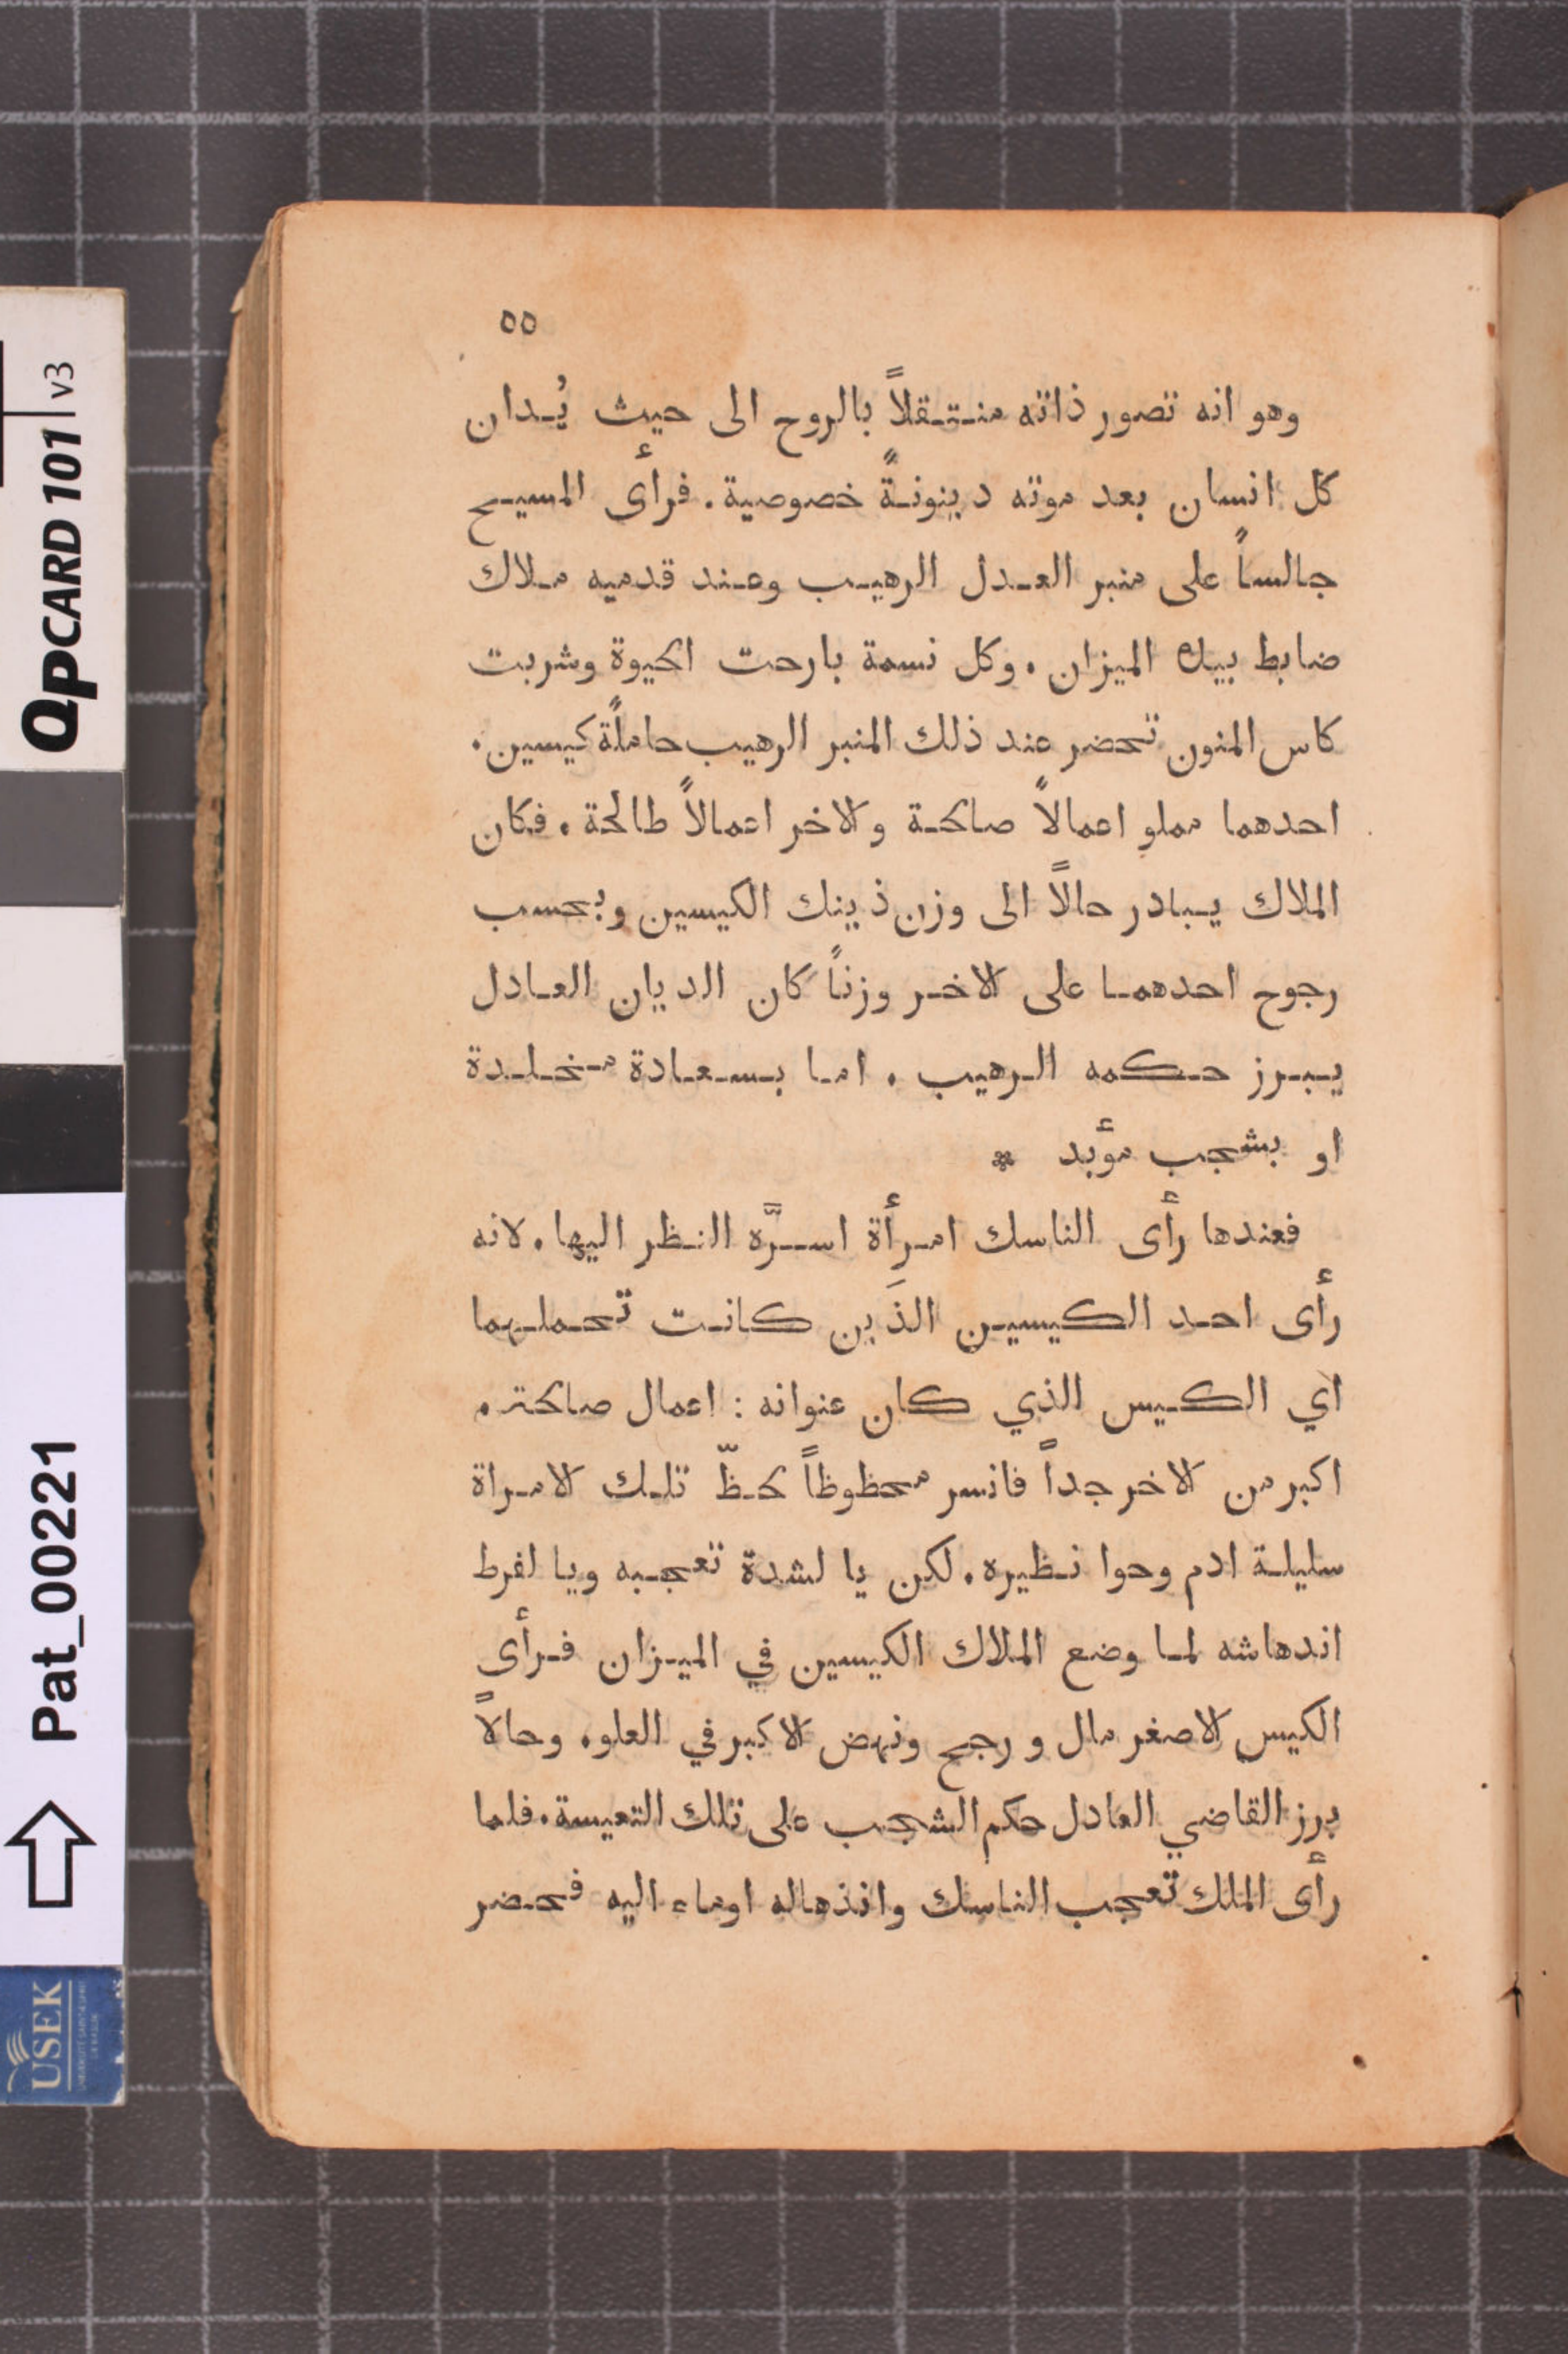 ٥٥
وهو انه تصور ذاته منتقلاً بالروح الى حيث يُدان
كل انسان بعد موته دينونةً خصوصية. فرأى المسيح
جالساً على منبر العدل الرهيب وعند قدميه ملاك
ضابط بيده الميزان. وكل نسمة بارحت الحيوة وشربت
كاس المنون تحضر عند ذلك المنبر الرهيب حاملةً كيسين.
احدهما مملو اعمالاً صالحة والاخر اعمالاً طالحة. فكان
الملاك يبادر حالاً الى وزن ذينك الكيسين وبحسب
رجوح احدهما على الاخر وزناً كان الديان العادل
يبرز حكمه الرهيب. اما بسعادة مخلدة
او بشجب مؤبد *
فعندها رأى الناسك امرأة اسرَّه النظر اليها. لانه
رأى احد الكيسين الذَين كانت تحملهما
اي الكيس الذي كان عنوانه: اعمال صالحة.
اكبر من الاخر جداً فانسر محظوظاً لحظّ تلك الامراة
سليلة ادم وحوا نظيره. لكن يا لشدة تعجبه ويا لفرط
اندهاشه لما وضع الملاك الكيسين في الميزان فرأى
الكيس الاصغر مال ورجح ونهض الاكبر في العلو. وحالاً
برز القاضي العادل حكم الشجب على تلك التعيسة. فلما
رأى الملك تعجب الناسك وانذهاله اوماء اليه فحضر
QPCARD 101 v3
Pat_00221
USEK